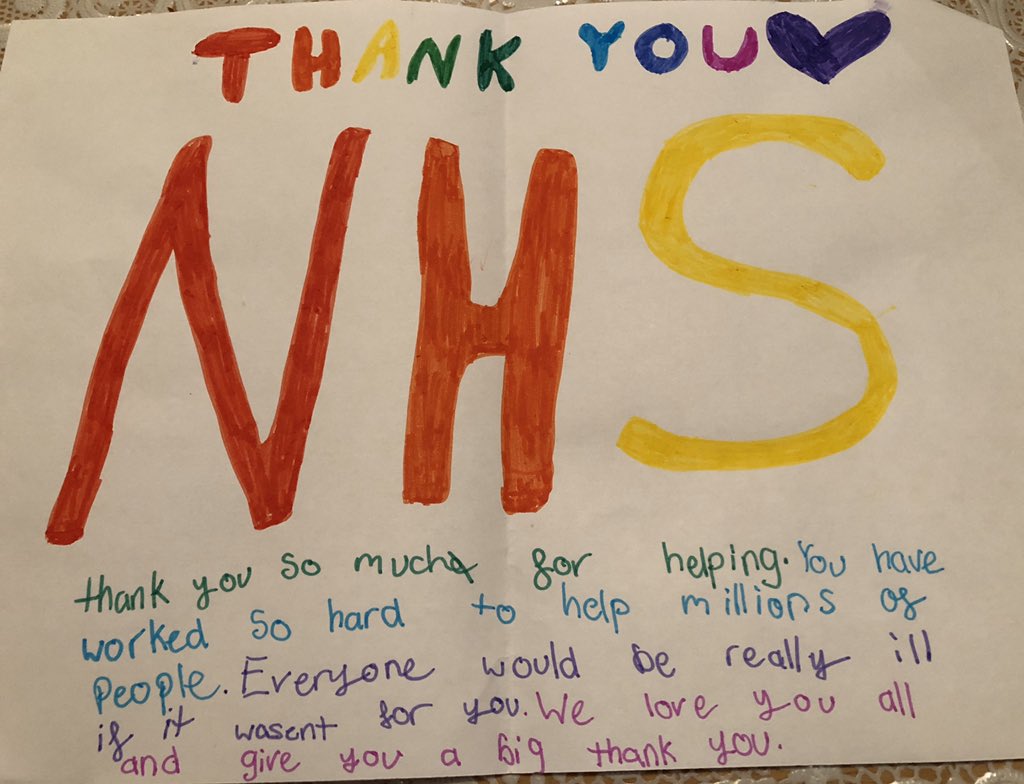 THANK YOU
NHS
thank you so much for helping. You have
worked so hard to help millions of
people. Everyone would be really ill
if it wasent for you. We love you all
and give you a big thank you.